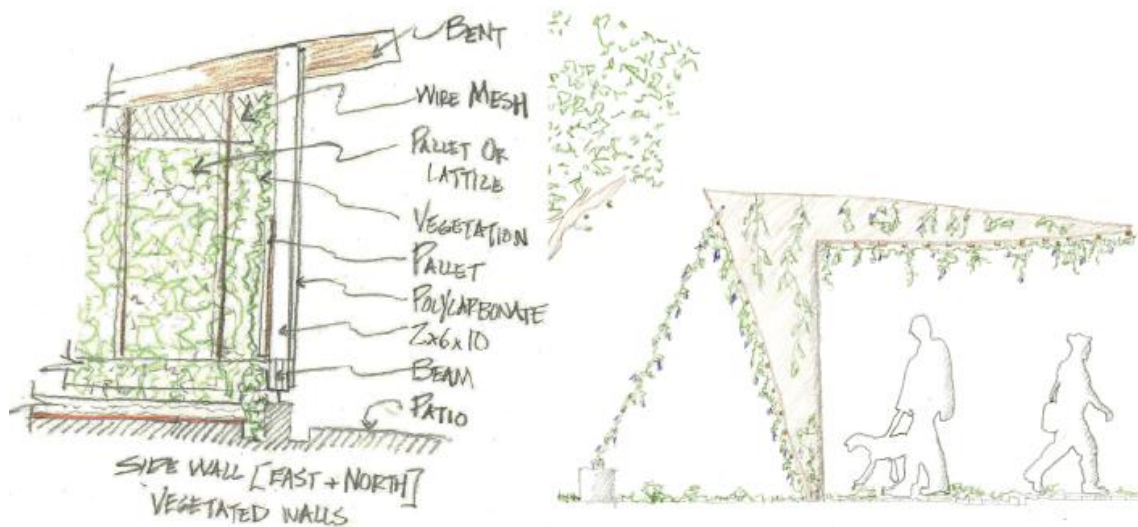 BENT
WIRE MESH
PALLET OR
LATTIZE
VEGETATION
PALLET
POLYCARBONATE
2x6x10
BEAM
PATIO
SIDE WALL [EAST + NORTH]
VEGETATED WALLS